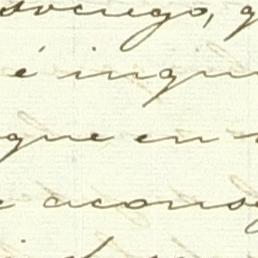 sosiego, q
é inqui
que en
aconse